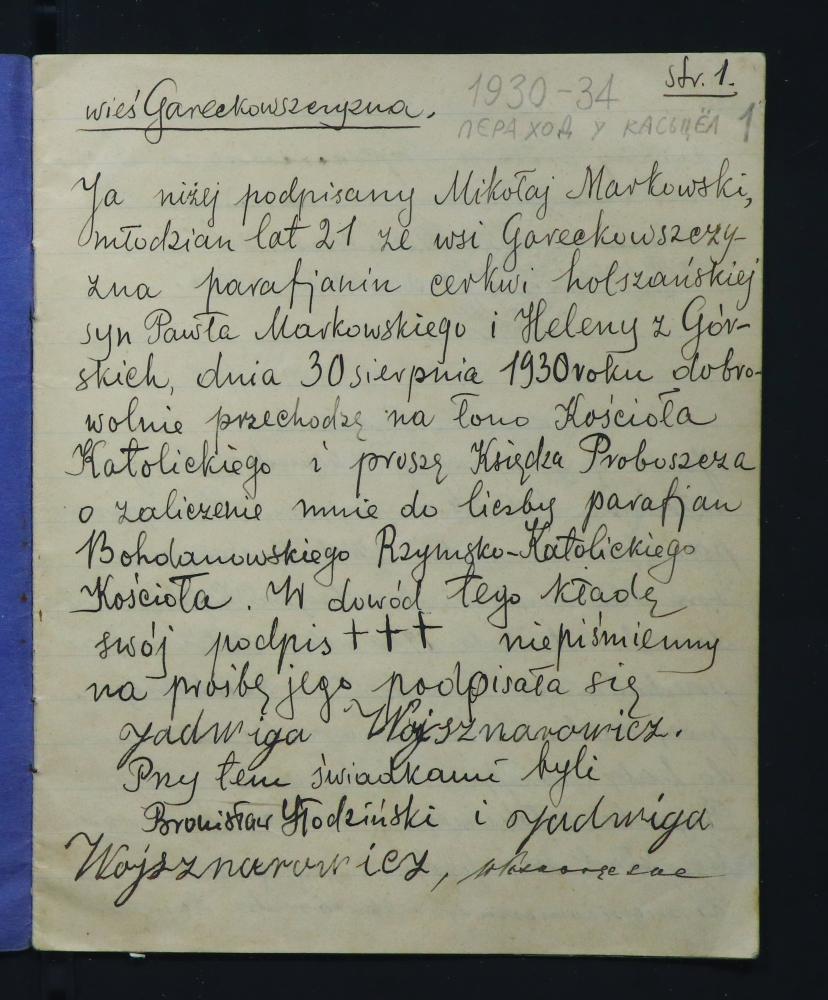 str. 1.
1930-34
wieś Gareckowszczyzna.
ПЕРАХОД У КАСЬЦЁЛ 1
Ja niżej podpisany Mikołaj Markowski,
młodzian lat 21 ze wsi Gareckowszczy-
zna parafjanin cerkwi holszańskiej
syn Pawła Markowskiego i Heleny z Gór-
skich, dnia 30 sierpnia 1930 roku dobro-
wolnie przechodzę na łono Kościoła
Katolickiego i proszę Księdza Proboszcza
o zaliczenie mnie do liczby parafjan
Bohdanowskiego Rzymsko-Katolickiego
Kościoła. W dowód tego kładę
swój podpis +++ niepiśmienny
na prośbę jego podpisała się
Jadwiga Wojsznarowicz.
Przy tem świadkami byli
Bronisław i Jadwiga
Wojsznarowicz,